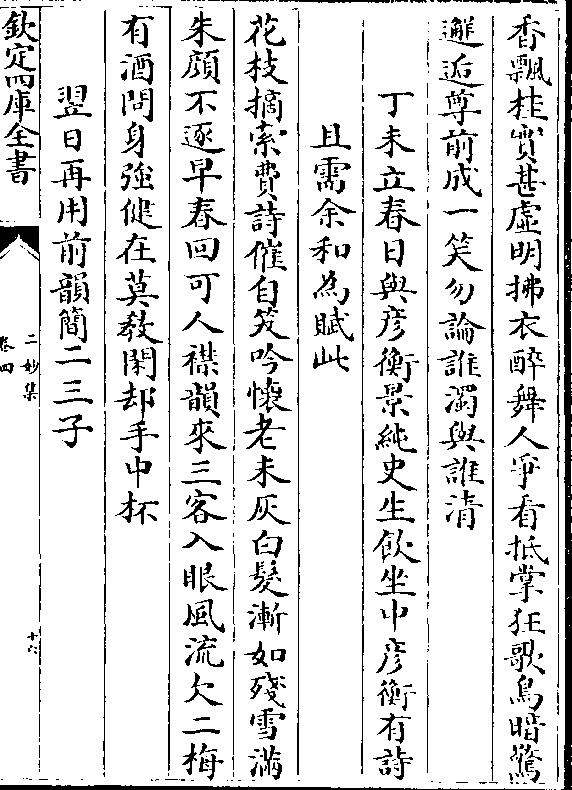 香飄桂實甚虛明拂衣醉舞人爭看抵掌狂歌鳥暗驚
邂逅尊前成一笑勿論誰濁與誰清
丁未立春日與彦衡景純史生飲坐中彦衡有詩
且需余和為賦此
花枝摘索費詩催自笑吟懷老未灰白髮漸如殘雪滿
朱顔不逐早春回可人襟韻來三客入眼風流欠二梅
有酒問身強健在莫教閑却手中杯
翌日再用前韻簡二三子
欽定四庫全書
二妙集
卷四
十六